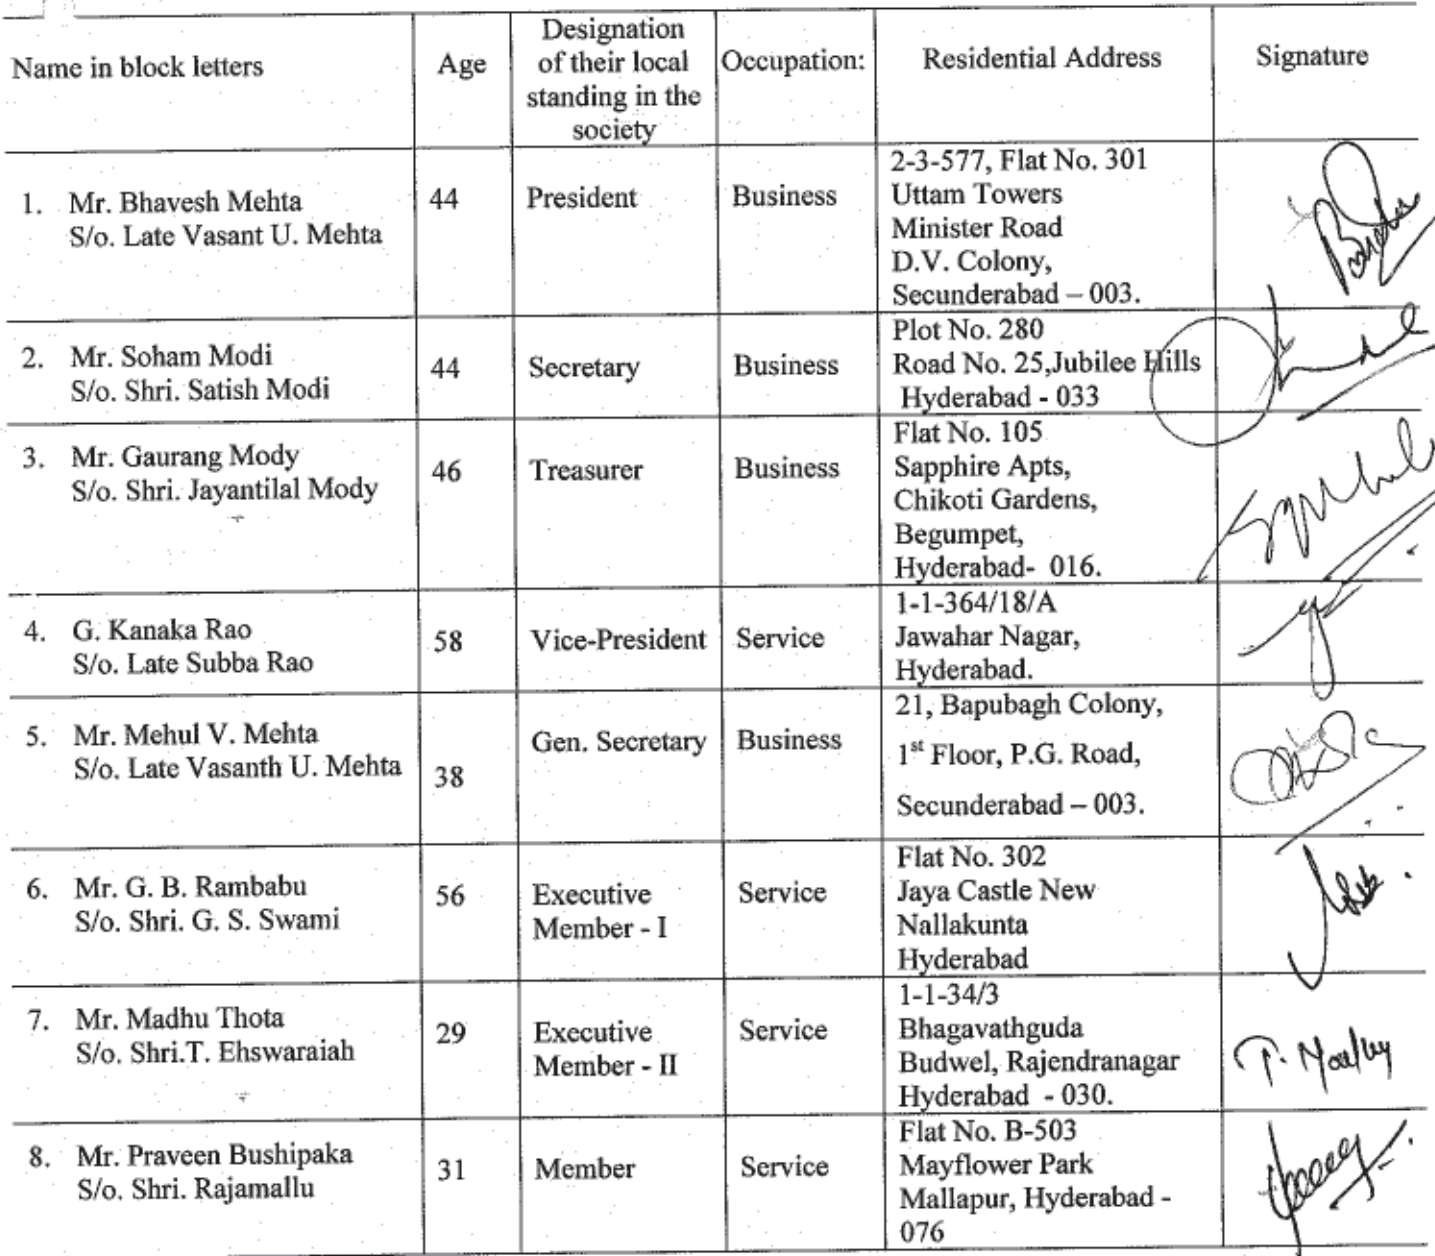 Name in block letters
Age
Designation
of their local
standing in the
society
Occupation:
Residential Address
Signature
1. Mr. Bhavesh Mehta
S/o. Late Vasant U. Mehta
44
President
Business
2-3-577, Flat No. 301
Uttam Towers
Minister Road
D.V. Colony,
Secunderabad – 003.
2. Mr. Soham Modi
S/o. Shri. Satish Modi
44
Secretary
Business
Plot No. 280
Road No. 25,Jubilee Hills
Hyderabad - 033
3. Mr. Gaurang Mody
S/o. Shri. Jayantilal Mody
46
Treasurer
Business
Flat No. 105
Sapphire Apts,
Chikoti Gardens,
Begumpet,
Hyderabad- 016.
4. G. Kanaka Rao
S/o. Late Subba Rao
58
Vice-President
Service
1-1-364/18/A
Jawahar Nagar,
Hyderabad.
5. Mr. Mehul V. Mehta
S/o. Late Vasanth U. Mehta
38
Gen. Secretary
Business
21, Bapubagh Colony,
1st Floor, P.G. Road,
Secunderabad – 003.
6. Mr. G. B. Rambabu
S/o. Shri. G. S. Swami
56
Executive
Member - I
Service
Flat No. 302
Jaya Castle New
Nallakunta
Hyderabad
7. Mr. Madhu Thota
S/o. Shri.T. Ehswaraiah
29
Executive
Member - II
Service
1-1-34/3
Bhagavathguda
Budwel, Rajendranagar
Hyderabad - 030.
8. Mr. Praveen Bushipaka
S/o. Shri. Rajamallu
31
Member
Service
Flat No. B-503
Mayflower Park
Mallapur, Hyderabad -
076